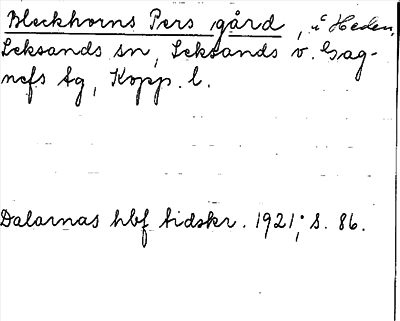 Bleckhorns Pers gård, i Heden,
Leksands sn, Leksands o. Gag-
nefs tg, Kopp. l.
Dalarnas hbf tidskr. 1921; s. 86.